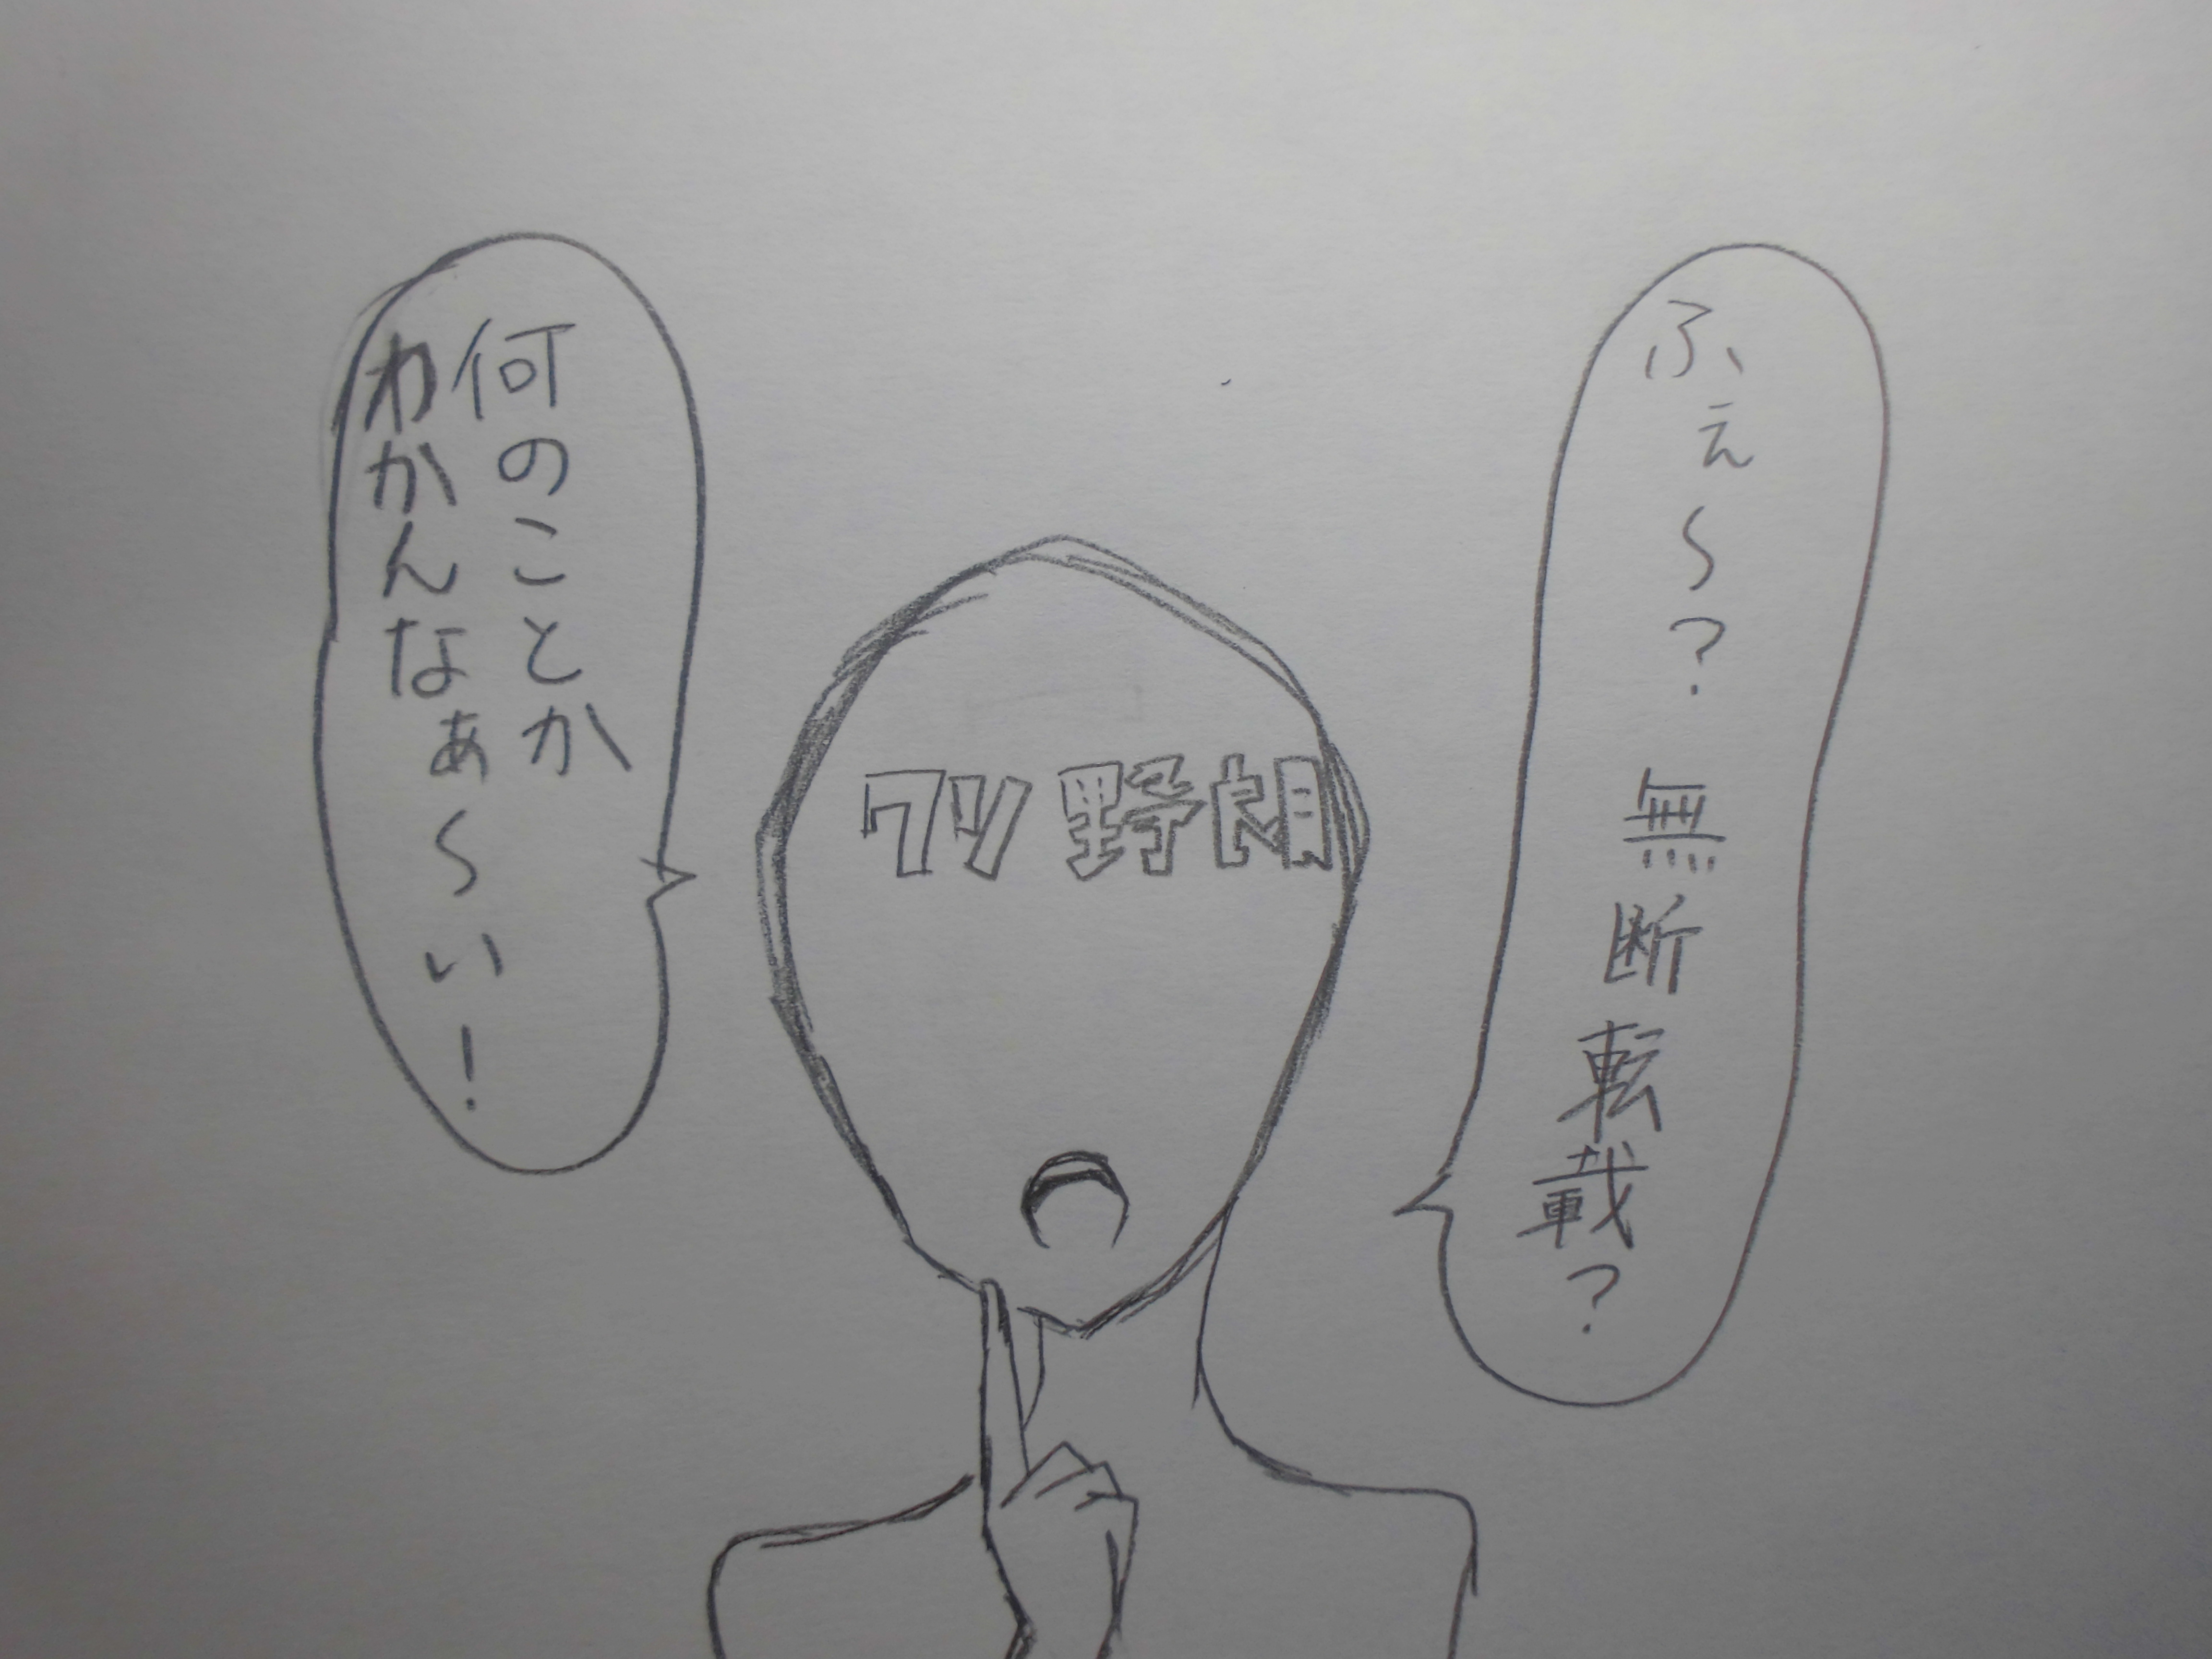 ふぇ〜？無断転載？
クソ野朗
何のことか
わかんなぁ〜い！